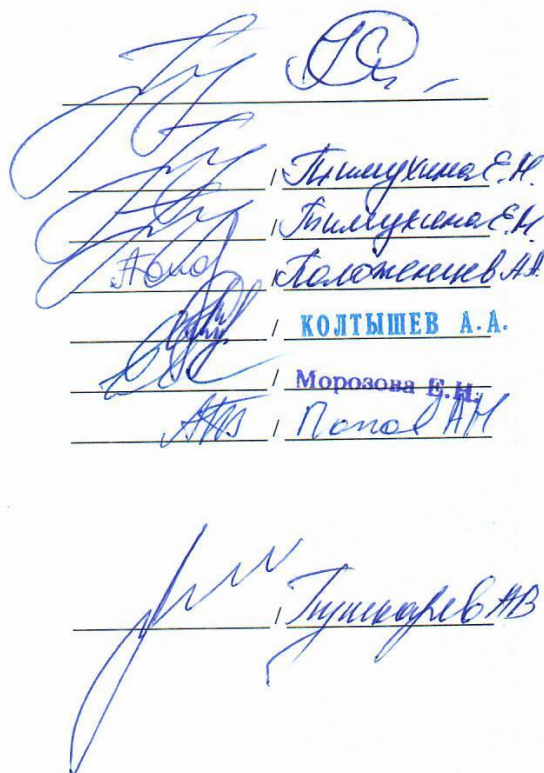 / Тимухина Е.Н.
/ Тимухина Е.Н
/ Положенцев А.А.
/ КОЛТЫШЕВ А.А.
/ Морозова Е.Н.
/ Попов АН
/ Пушкарев АВ